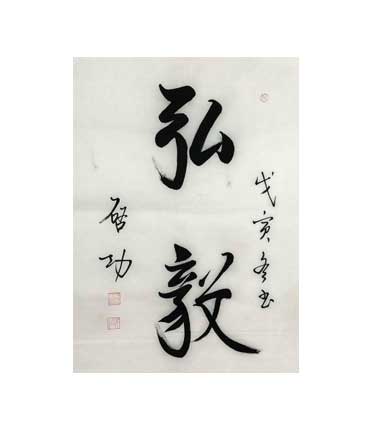 戊寅冬书
弘毅
启功